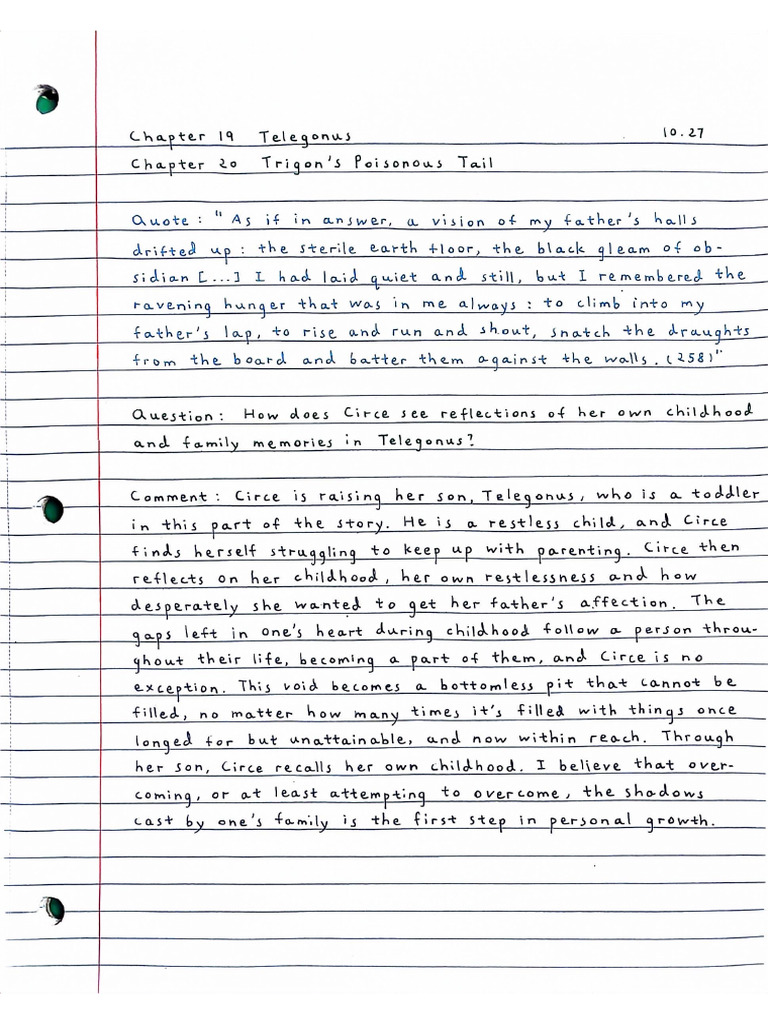 Chapter 19 Telegonus 10.27
Chapter 20 Trigon's Poisonous Tail
Quote : " As if in answer, a vision of my father's halls
drifted up : the sterile earth floor, the black gleam of ob-
sidian [...] I had laid quiet and still, but I remembered the
ravening hunger that was in me always : to climb into my
father's lap, to rise and run and shout, snatch the draughts
from the board and batter them against the walls. (258)"
Question : How does Circe see reflections of her own childhood
and family memories in Telegonus?
Comment : Circe is raising her son, Telegonus, who is a toddler
in this part of the story. He is a restless child, and Circe
finds herself struggling to keep up with parenting. Circe then
reflects on her childhood, her own restlessness and how
desperately she wanted to get her father's affection. The
gaps left in one's heart during childhood follow a person throu-
ghout their life, becoming a part of them, and Circe is no
exception. This void becomes a bottomless pit that cannot be
filled, no matter how many times it's filled with things once
longed for but unattainable, and now within reach. Through
her son, Circe recalls her own childhood. I believe that over-
coming, or at least attempting to overcome, the shadows
cast by one's family is the first step in personal growth.